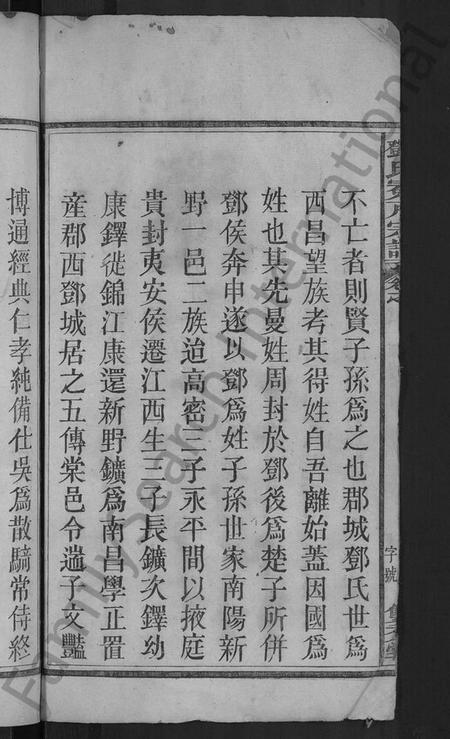 不亡者則賢子孫爲之也郡城鄧氏世爲
西昌望族考其得姓自吾離始蓋因國爲
姓也其先曼姓周封於鄧後爲楚子所併
鄧侯奔申遂以鄧爲姓子孫世家南陽新
野一邑二族迨高密三子永平間以掖庭
貴封夷安侯遷江西生三子長鑛次鐸幼
康鐸徙錦江康還新野鑛爲南昌學正置
産郡西鄧城居之五傳棠邑令遄子文豔
博通經典仁孝純備仕吳爲散騎常侍終
字號
FamilySearch International